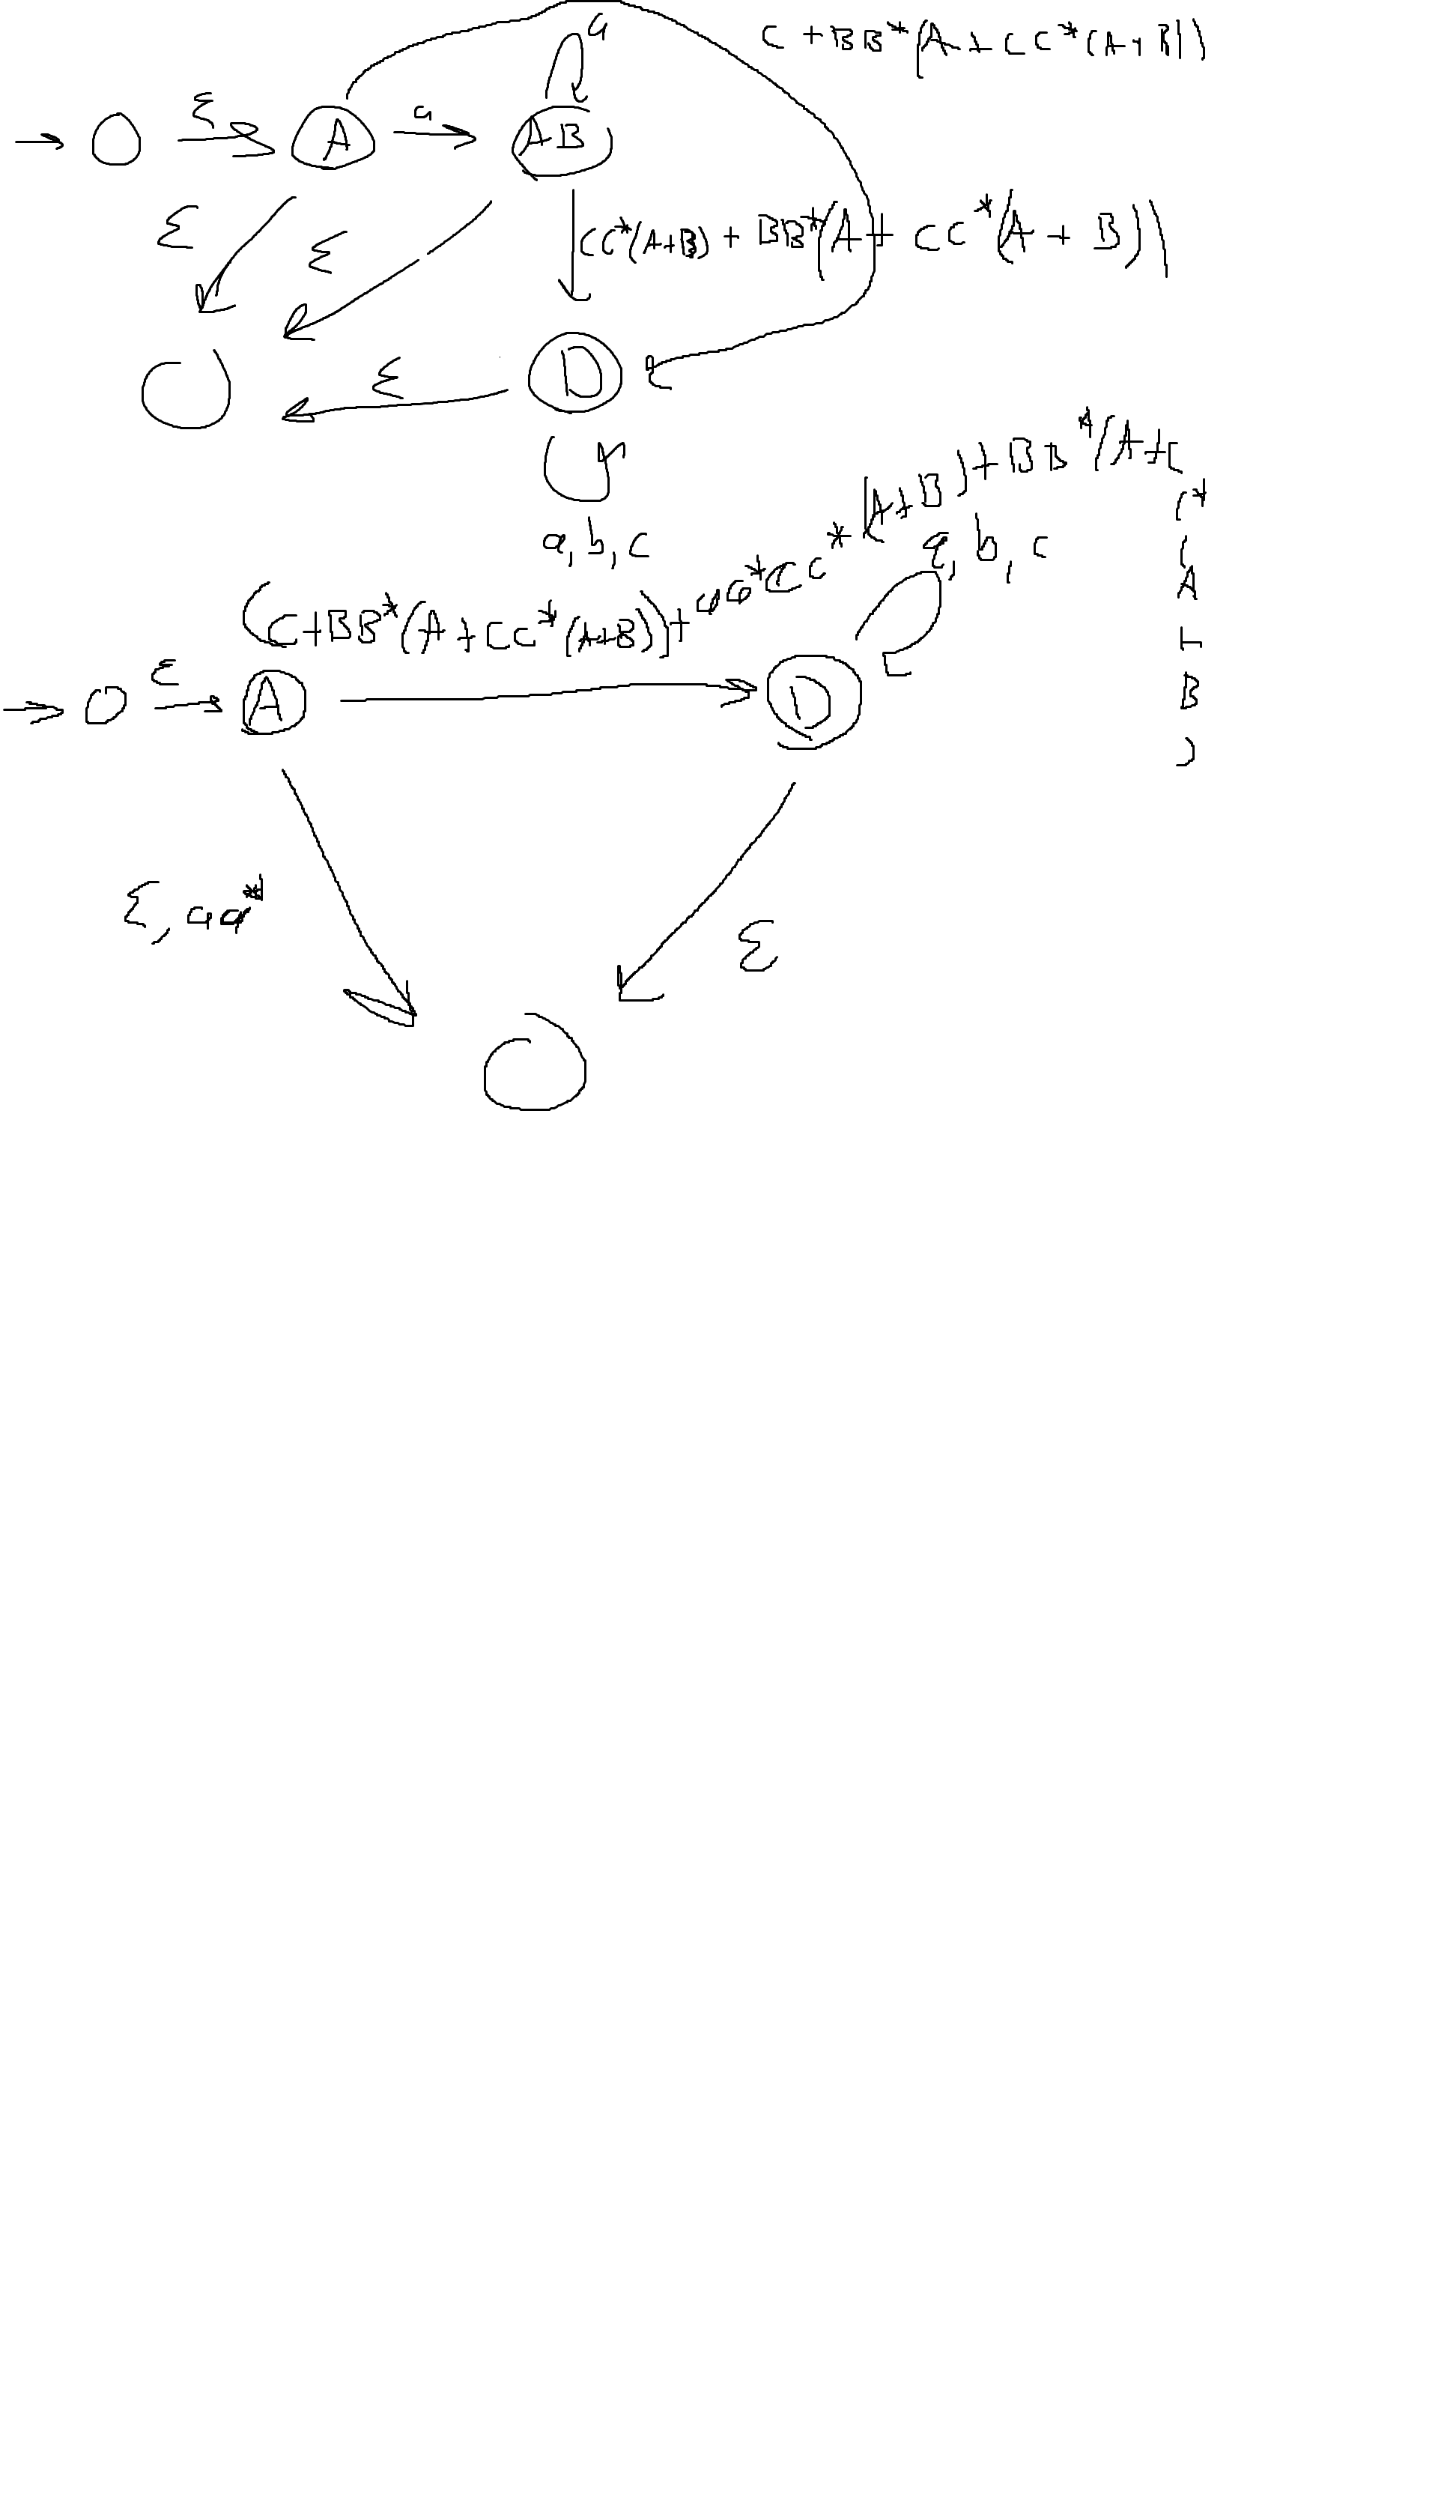 a
C + BB*(A + CC*(A+B))
ε
A
a
AB
ε
ε
CC*(A+B) + BB*(A + CC*(A + B))
ε
D
a, b, c
(C+BB*(A+CC*(A+B))+aa*CC*(A+B)+BB*(A+C
C*
(
A
+
B
)
a, b, c
ε
A
D
ε, aa*
ε